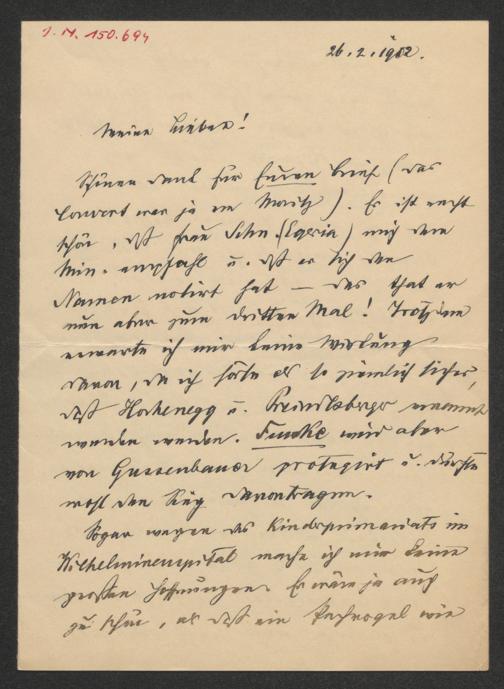 J. N. 150.694
26.2.1902.
Meine Lieben!
Schönen Dank für Euren Brief (das
Couvert war ja an Moritz). Es ist recht
schön, daß Frau Schn. (Egeria) mich dem
Min. empfahl u. daß er sich den
Namen notirt hat – das that er
nun aber zum dritten Mal! Trotzdem
erwarte ich mir keine Wirkung
davon, da ich hörte als so ziemlich sicher,
daß Hochenegg u. Preindlsberger ernannt
werden werden. Funke wird aber
von Gussenbauer protegirt u. dürfte
wohl den Sieg davontragen.
Sogar wegen des Kinderprimariats im
Wilhelminenspital mache ich mir keine
großen Hoffnungen. Es wäre ja auch
zu schön, als daß ein Pechvogel wie